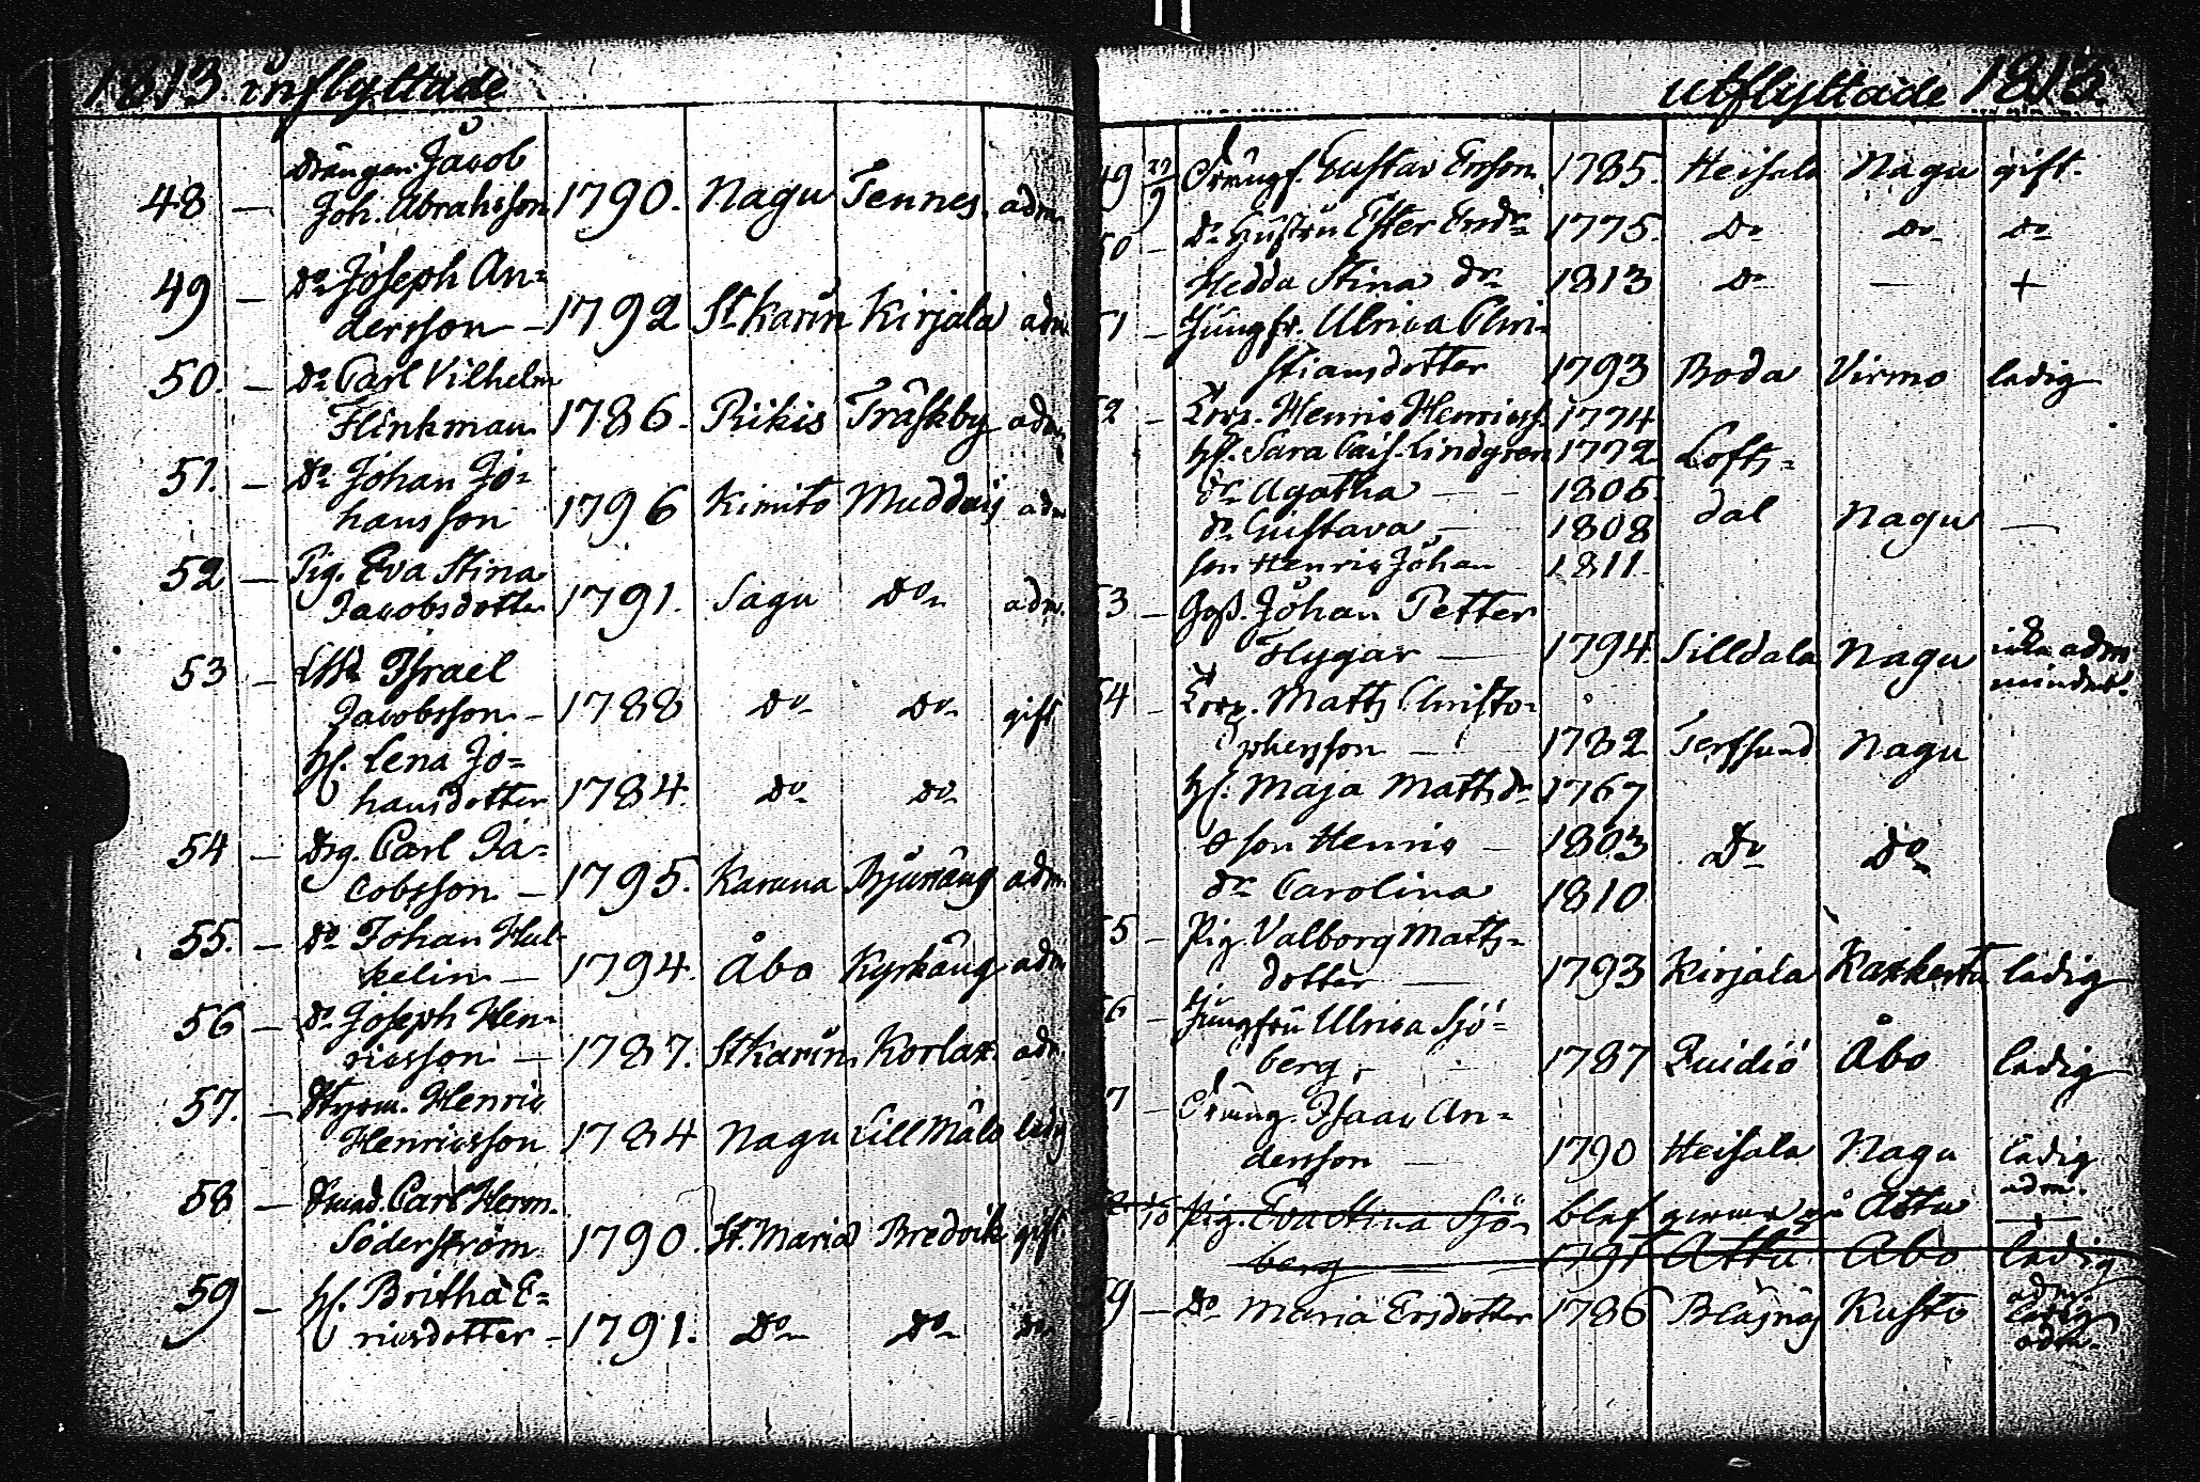 1813. inflyttade
Drängen Jacob
48 — Joh. Abrahsson 1790. Nagu Tennes. adm.
49 — Do Joseph An=
dersson — 1792 St Karin Kirjala adm
50. — Do Carl Vilhelm
Flinkman 1786. Pikis Träskby adm
51. — Do Johan Jo=
hansson 1796 Kimito Muddais adm
52 — Pig. Eva Stina
Jacobsdotter 1791. Sagu Do adm.
53 — Israel
Jacobsson — 1788 Do Do gift
hf. Lena Jo=
hansdotter 1784. Do Do
54 — Drg. Carl Ja=
cobsson — 1795. Karuna Bjuräng adm.
55. — Do Johan Hul-
kelin — 1794. Åbo Kyrkäng adm
56 — Do Joseph Hen-
ricsson — 1787. St Karin Korlax. adm.
57. — Styrm. Henric
Henricsson 1784 Nagu Lillmälo ledig
58 — Carl Herm.
Söderström 1790. St. Maria Bredvik gift
59 — hf. Britha E=
ricsdotter — 1791. Do Do Do
utflyttade 1813.
49 22/9 Gustav Ersson 1785. Heisala Nagu gift.
50 — Do Hustru Ester Ersdr 1775. Do Do Do
Hedda Stina dr 1813 Do — +
51 — Jungfr. Ulrica Chri-
stiansdotter 1793 Boda Virmo ledig
52 — Torp. Henric Henricss. 1774
hf. Sara Cais. Lindgren 1772 Lofts=
dr Agatha — 1805.
dr Gustava — 1808 dal Nagu —
son Henric Johan 1811.
53 — Goss. Johan Petter
Flygar — 1794. Silldala Nagu icke adm
54 — Torp. Matts Christo=
phersson — 1782 Terfsund Nagu
hf. Maja Mattsdr 1767
son Henric — 1803 Do Do
dr Carolina 1810
55 — Pig. Valborg Matts=
dotter — 1793 Kirjala Kaxkerta ledig
56 — Jungfru Ulrica Sjö=
berg. — 1787 Quidiö Åbo ledig
57 — Dräng. Isaac An=
dersson — 1790 Heisala Nagu ledig
adm.
/10 Pig. Eva Stina Sjö- blef qvar på Attu —
berg — 1791 Attu Åbo ledig
adm.
59 — Do Maria Ersdotter 1786 Bläsnäs Kustö ledig
adm.